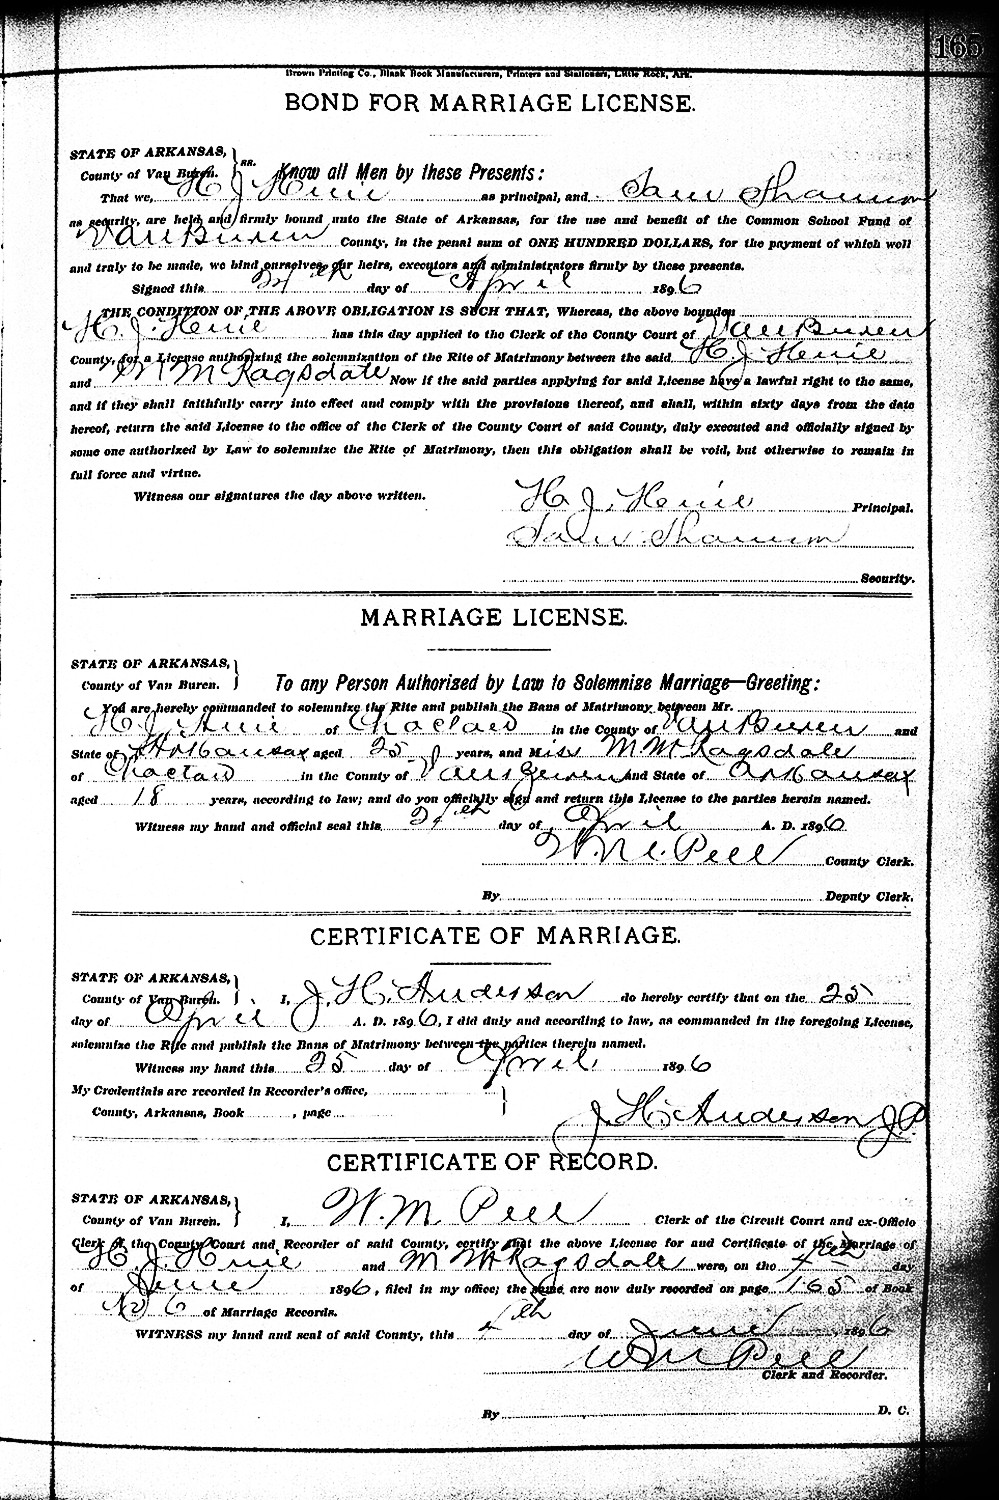 165
Brown Printing Co., Blank Book Manufacturers, Printers and Stationers, Little Rock, Ark.
BOND FOR MARRIAGE LICENSE.
STATE OF ARKANSAS,
County of Van Buren. } ss. Know all Men by these Presents:
That we, H. J. as principal, and Sam Shannon
as security, are held and firmly bound unto the State of Arkansas, for the use and benefit of the Common School Fund of
Van Buren County, in the penal sum of ONE HUNDRED DOLLARS, for the payment of which well
and truly to be made, we bind ourselves, our heirs, executors and administrators firmly by these presents.
Signed this day of April 1896
THE CONDITION OF THE ABOVE OBLIGATION IS SUCH THAT, Whereas, the above bounden
H. J. has this day applied to the Clerk of the County Court of Van Buren
County, for a License authorizing the solemnization of the Rite of Matrimony between the said H. J.
and M M Ragsdale Now if the said parties applying for said License have a lawful right to the same,
and if they shall faithfully carry into effect and comply with the provisions thereof, and shall, within sixty days from the date
hereof, return the said License to the office of the Clerk of the County Court of said County, duly executed and officially signed by
some one authorized by Law to solemnize the Rite of Matrimony, then this obligation shall be void, but otherwise to remain in
full force and virtue.
Witness our signatures the day above written.
H. J. Principal.
Sam Shannon
Security.
MARRIAGE LICENSE.
STATE OF ARKANSAS,
County of Van Buren. } To any Person Authorized by Law to Solemnize Marriage—Greeting:
You are hereby commanded to solemnize the Rite and publish the Bans of Matrimony between Mr.
H. J. of Choctaw in the County of Van Buren and
State of Arkansas aged 25 years, and Miss M M Ragsdale
of Choctaw in the County of Van Buren and State of Arkansas
aged 18 years, according to law; and do you officially sign and return this License to the parties herein named.
Witness my hand and official seal this 24th day of April A. D. 1896
W. M. Peel County Clerk.
By Deputy Clerk.
CERTIFICATE OF MARRIAGE.
STATE OF ARKANSAS,
County of Van Buren. } I, J. H. Anderson do hereby certify that on the 25
day of April A. D. 1896, I did duly and according to law, as commanded in the foregoing License,
solemnize the Rite and publish the Bans of Matrimony between the parties therein named.
Witness my hand this 25 day of April 1896
My Credentials are recorded in Recorder's office,
County, Arkansas, Book , page
J. H. Anderson J.P.
CERTIFICATE OF RECORD.
STATE OF ARKANSAS,
County of Van Buren. } I, W. M Peel Clerk of the Circuit Court and ex-Officio
Clerk of the County Court and Recorder of said County, certify that the above License for and Certificate of the Marriage of
H. J. and M M Ragsdale were, on the 4th day
of June 1896, filed in my office; the same are now duly recorded on page 165 of Book
No 6 of Marriage Records.
WITNESS my hand and seal of said County, this 4th day of June 1896
W M Peel
Clerk and Recorder.
By D. C.